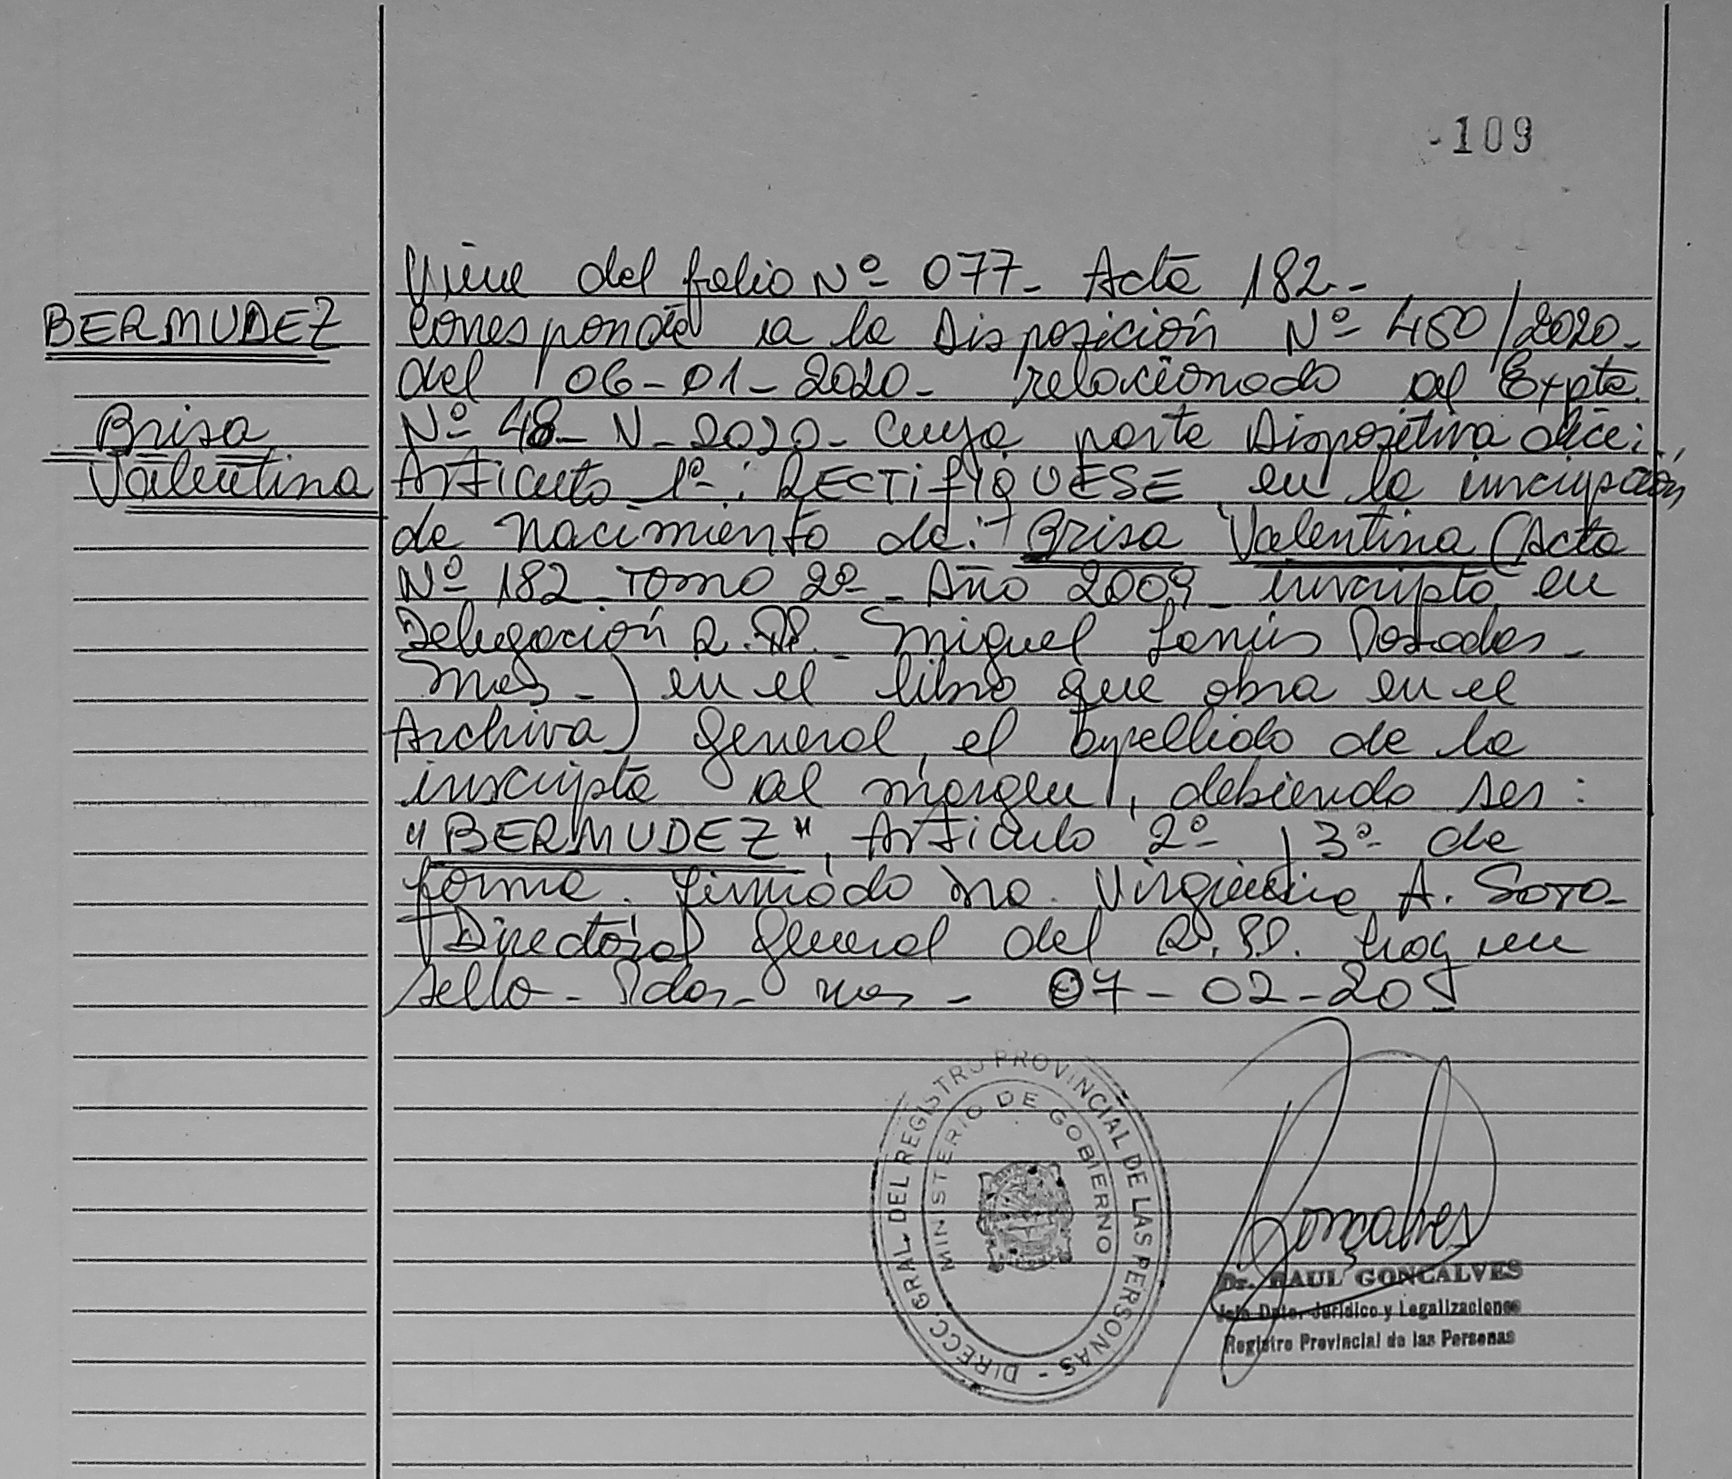 -109
BERMUDEZ
Brisa
Valentina
Viene del folio Nº 077- Acta 182--
Corresponde a la Disposición Nº 450/2020-
del 06-01-2020- relacionado al Expte.
Nº 48-N-2020- Cuya parte Dispositiva dice:
Articulo 1º: RECTIFIQUESE en la inscripción
de nacimiento de:- Brisa Valentina (Acta
Nº 182 Tomo 2º- Año 2009- inscripta en
Delegación R.PP.- Miguel Lanús Posadas-
Mns-) en el libro que obra en el
Archivo General, el apellido de la
inscripta al margen, debiendo ser:
"BERMUDEZ", Articulo 2º y 3º de
forma. Firmado Virginia A. Soto-
Directora General del R.PP. hay un
sello- Pdas- Mns- 07-02-20
DIRECC. GRAL. DEL REGISTRO PROVINCIAL DE LAS PERSONAS -
MINISTERIO DE GOBIERNO
Goncalves
Dr. RAUL GONCALVES
Jefe Dpto. Jurídico y Legalizaciones
Registro Provincial de las Personas